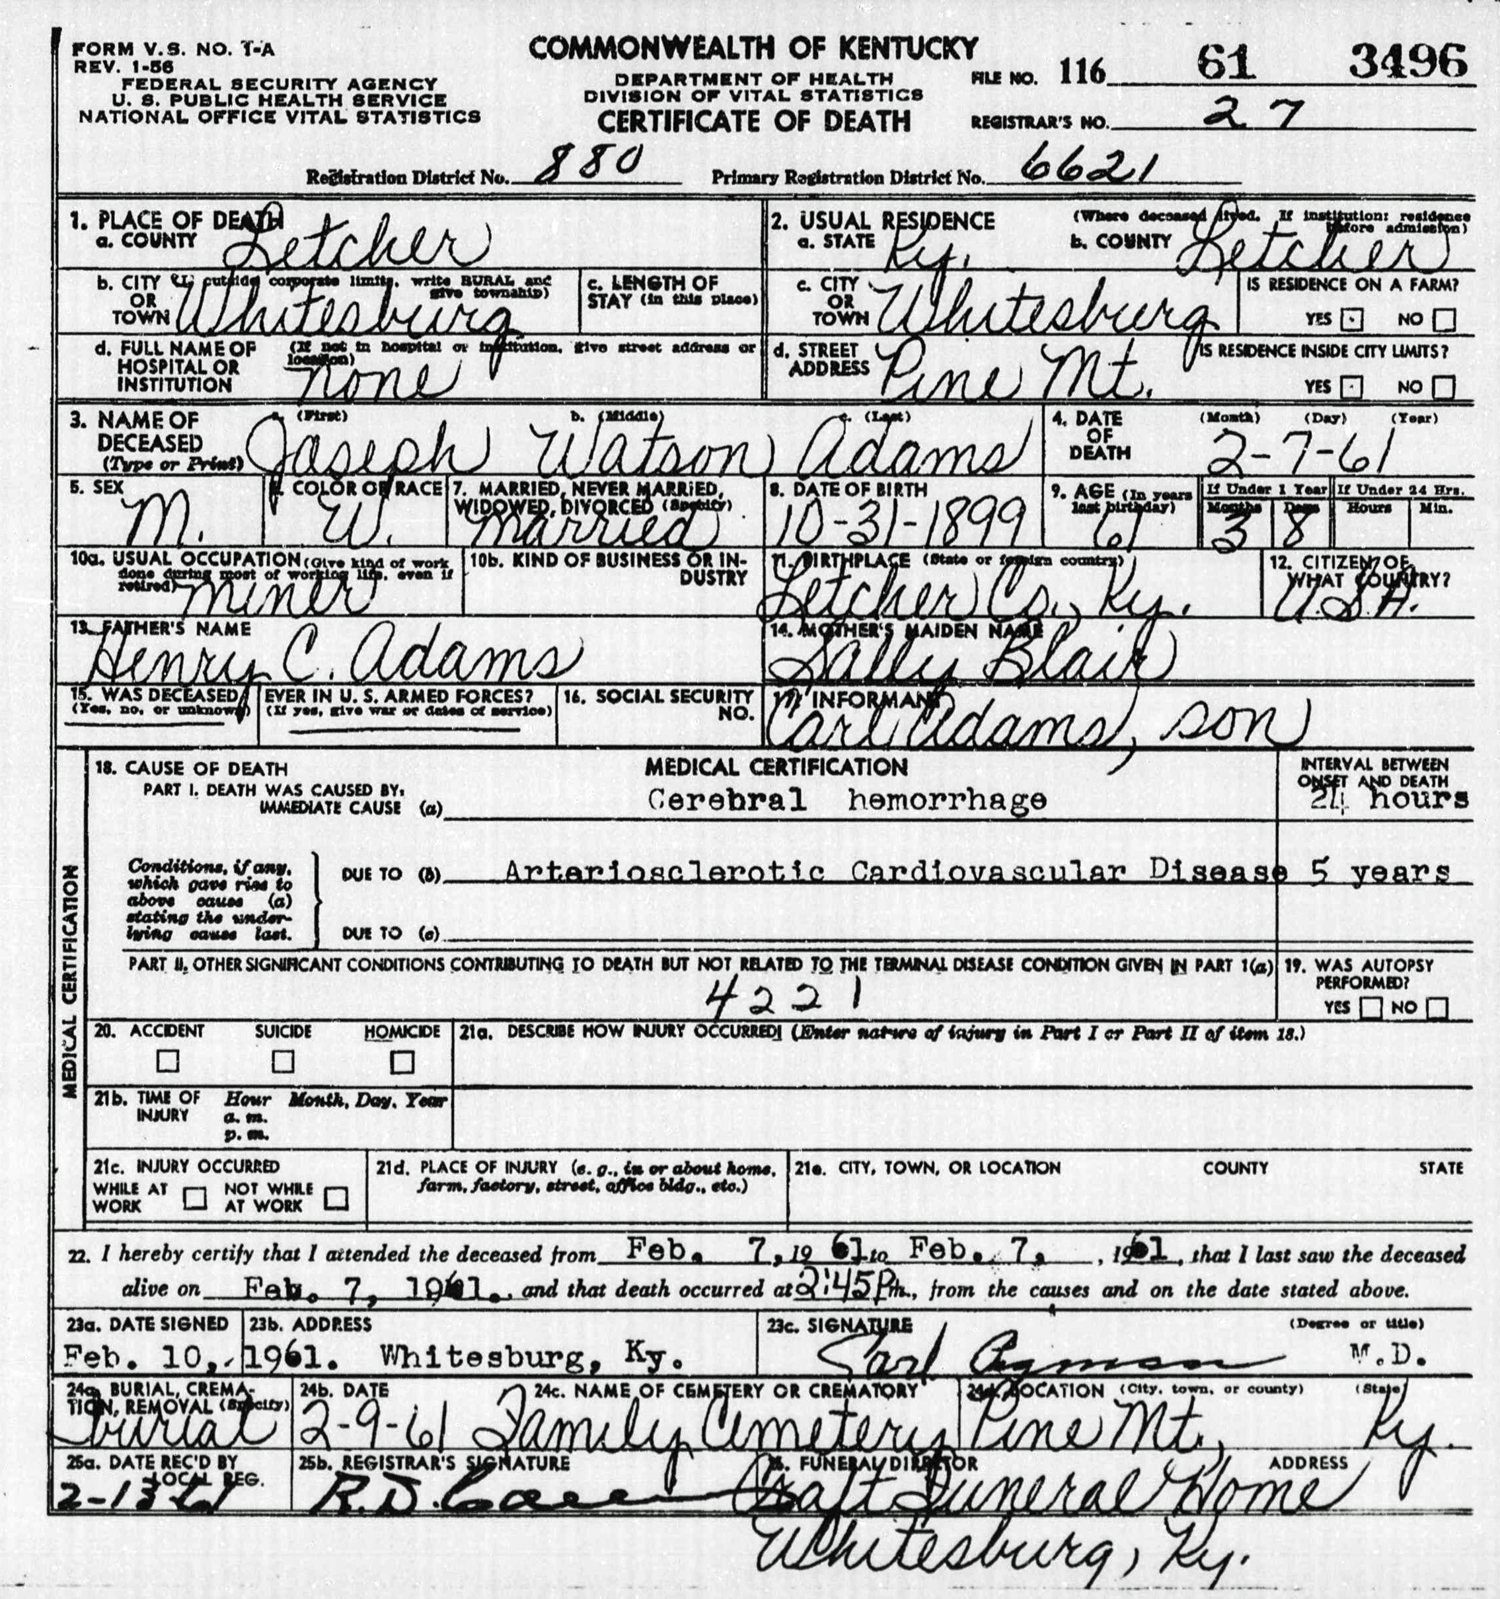 FORM V.S. NO. 1-A
REV. 1-56
FEDERAL SECURITY AGENCY
U. S. PUBLIC HEALTH SERVICE
NATIONAL OFFICE VITAL STATISTICS
COMMONWEALTH OF KENTUCKY
DEPARTMENT OF HEALTH
DIVISION OF VITAL STATISTICS
CERTIFICATE OF DEATH
FILE NO. 116 61 3496
REGISTRAR'S NO. 27
Registration District No. 880 Primary Registration District No. 6621
1. PLACE OF DEATH
a. COUNTY Letcher
2. USUAL RESIDENCE (Where deceased lived. If institution: residence before admission)
a. STATE Ky. b. COUNTY Letcher
b. CITY (If outside corporate limits, write RURAL and give township)
OR
TOWN Whitesburg
c. LENGTH OF STAY (in this place)
c. CITY
OR
TOWN Whitesburg
IS RESIDENCE ON A FARM?
YES NO
d. FULL NAME OF HOSPITAL OR INSTITUTION (If not in hospital or institution, give street address or location)
none
d. STREET ADDRESS Pine Mt.
IS RESIDENCE INSIDE CITY LIMITS?
YES NO
3. NAME OF DECEASED (Type or Print)
a. (First) b. (Middle) c. (Last)
Joseph Watson Adams
4. DATE OF DEATH (Month) (Day) (Year)
2-7-61
5. SEX
M.
6. COLOR OR RACE
W.
7. MARRIED, NEVER MARRIED, WIDOWED, DIVORCED (Specify)
married
8. DATE OF BIRTH
10-31-1899
9. AGE (In years last birthday)
61
If Under 1 Year If Under 24 Hrs.
Months Days Hours Min.
3 8
10a. USUAL OCCUPATION (Give kind of work done during most of working life, even if retired)
miner
10b. KIND OF BUSINESS OR INDUSTRY
11. BIRTHPLACE (State or foreign country)
Letcher Co., Ky.
12. CITIZEN OF WHAT COUNTRY?
U.S.A.
13. FATHER'S NAME
Henry C. Adams
14. MOTHER'S MAIDEN NAME
Sally Blair
15. WAS DECEASED EVER IN U. S. ARMED FORCES?
(Yes, no, or unknown) (If yes, give war or dates of service)
16. SOCIAL SECURITY NO.
17. INFORMANT
Carl Adams, son
MEDICAL CERTIFICATION
18. CAUSE OF DEATH
MEDICAL CERTIFICATION
INTERVAL BETWEEN ONSET AND DEATH
PART I. DEATH WAS CAUSED BY:
IMMEDIATE CAUSE (a) Cerebral hemorrhage 24 hours
Conditions, if any, which gave rise to above cause (a) stating the underlying cause last.
DUE TO (b) Arteriosclerotic Cardiovascular Disease 5 years
DUE TO (c)
PART II. OTHER SIGNIFICANT CONDITIONS CONTRIBUTING TO DEATH BUT NOT RELATED TO THE TERMINAL DISEASE CONDITION GIVEN IN PART I(a)
4221
19. WAS AUTOPSY PERFORMED?
YES NO
20. ACCIDENT SUICIDE HOMICIDE
21a. DESCRIBE HOW INJURY OCCURRED (Enter nature of injury in Part I or Part II of item 18.)
21b. TIME OF INJURY Hour Month, Day, Year
a. m.
p. m.
21c. INJURY OCCURRED
WHILE AT WORK NOT WHILE AT WORK
21d. PLACE OF INJURY (e. g., in or about home, farm, factory, street, office bldg., etc.)
21e. CITY, TOWN, OR LOCATION COUNTY STATE
22. I hereby certify that I attended the deceased from Feb. 7, 1961 to Feb. 7, , 1961, that I last saw the deceased
alive on Feb. 7, 1961. and that death occurred at 2:45 Pm., from the causes and on the date stated above.
23a. DATE SIGNED
Feb. 10, 1961.
23b. ADDRESS
Whitesburg, Ky.
23c. SIGNATURE (Degree or title)
Carl M.D.
24a. BURIAL, CREMATION, REMOVAL (Specify)
burial
24b. DATE
2-9-61
24c. NAME OF CEMETERY OR CREMATORY
Family Cemetery
24d. LOCATION (City, town, or county) (State)
Pine Mt., Ky.
25a. DATE REC'D BY LOCAL REG.
2-13-61
25b. REGISTRAR'S SIGNATURE
R. D.
26. FUNERAL DIRECTOR ADDRESS
Craft Funeral Home
Whitesburg, Ky.